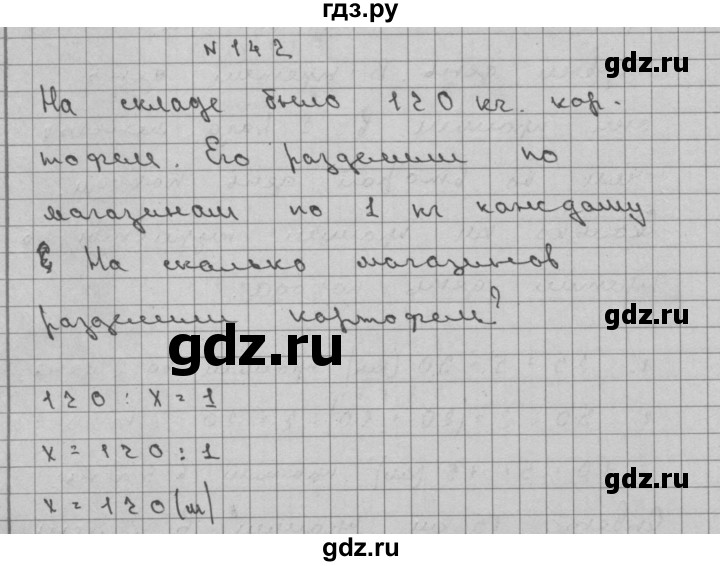 гдз.ру
N 142
gdz.ru
На складе было 120 кг. кар-
тофел. Его разделили по
gdz.ru
магазинам по 1 кг каждому
На сколько магазинов
разделили картофел?
gdz.ru
gdz.ru
120 : x = 1
x = 120 : 1
gdz.ru
x = 120 (м)
gdz.ru